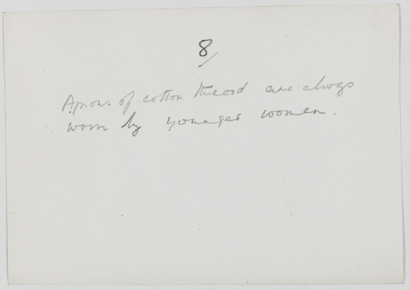 8/
Aprons of cotton thread are always
worn by younger women.